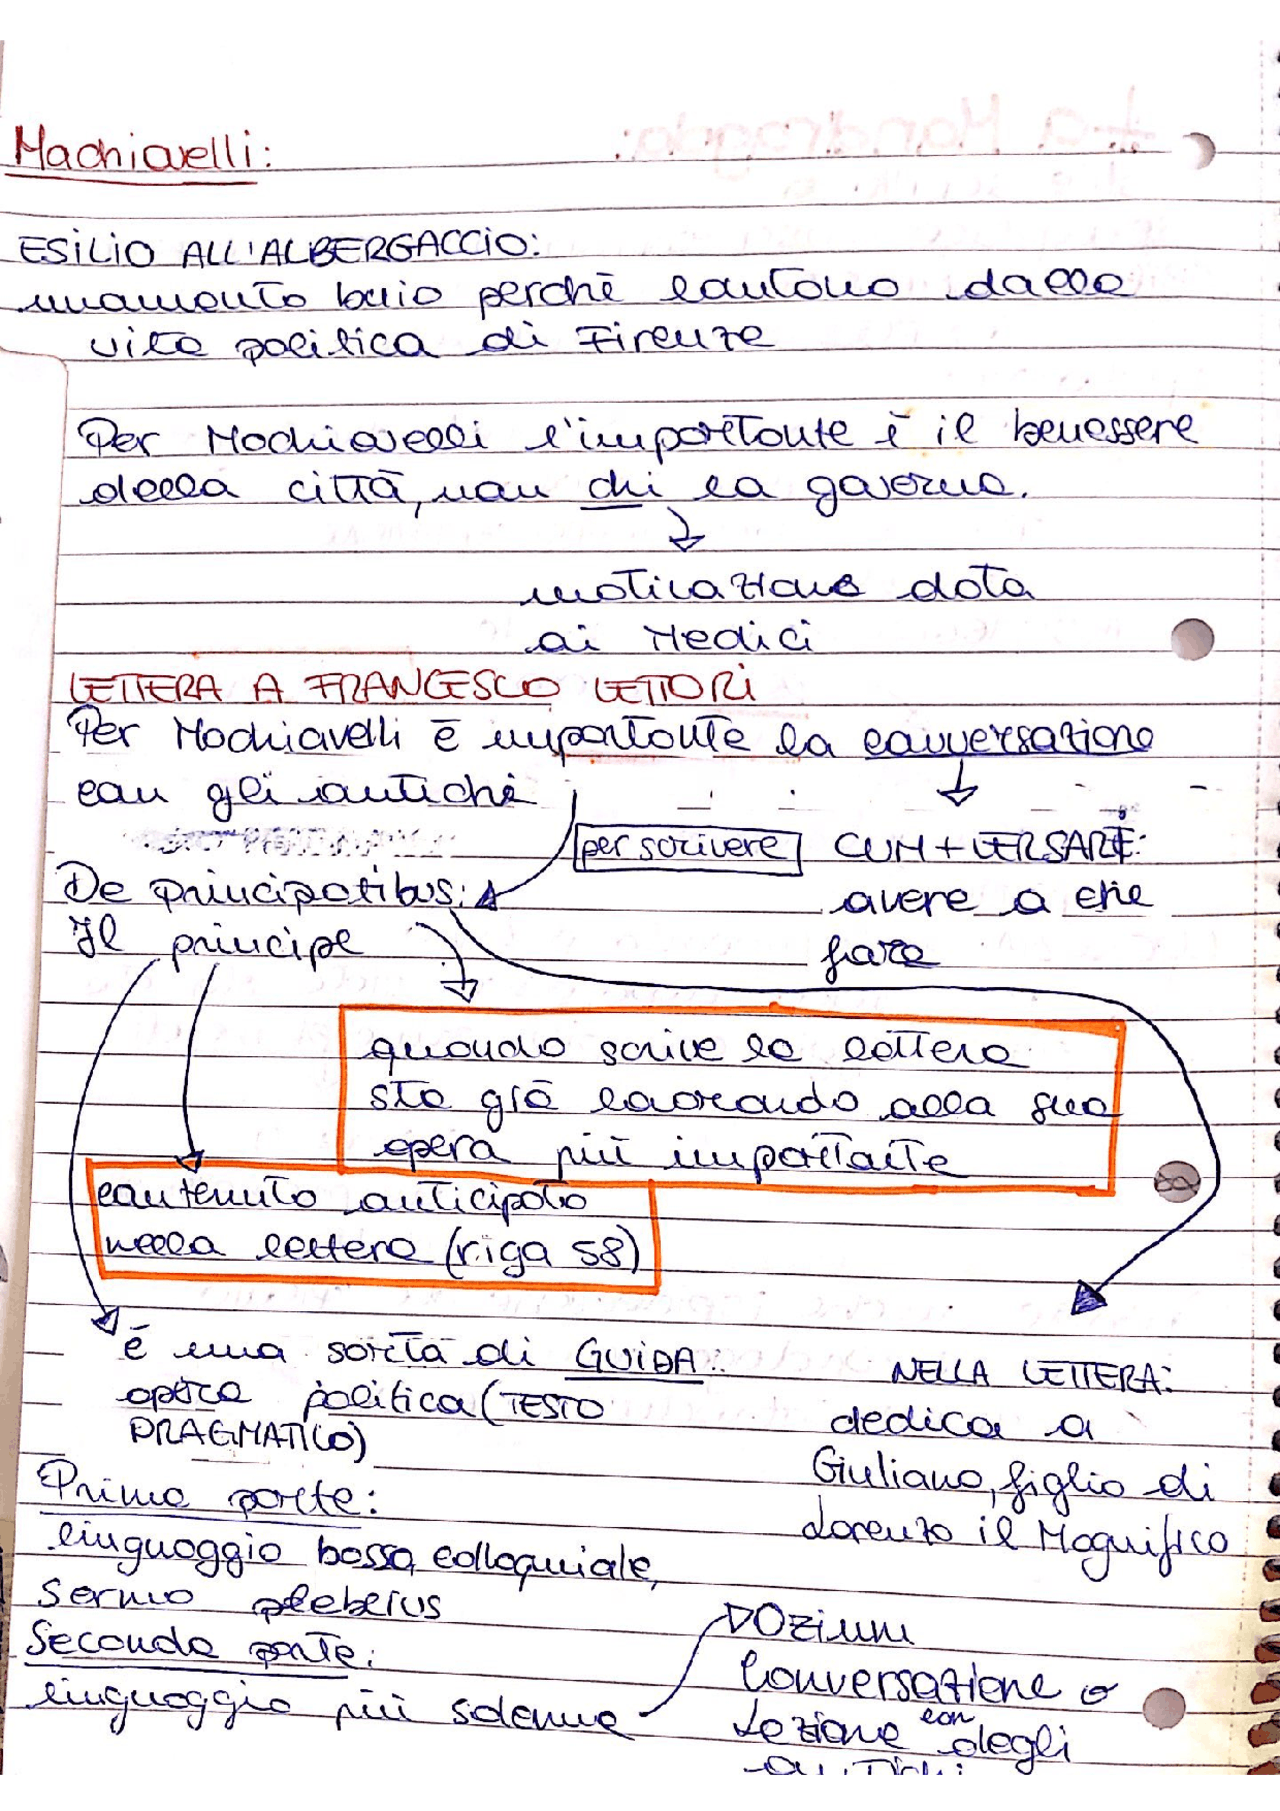 Machiavelli:
ESILIO ALL'ALBERGACCIO:
momento buio perchè lontano dalla
vita politica di Firenze
Per Machiavelli l'importante è il benessere
della città, non chi la governa.
motivazione data
ai Medici
LETTERA A FRANCESCO VETTORI
Per Machiavelli è importante la conversazione
con gli antichi
per scrivere
CUM + VERSARE:
avere a che
fare
De principatibus:
Il principe
quando scrive la lettera
sta già lavorando alla sua
opera più importante
contenuto anticipato
nella lettera (riga 58)
è una sorta di GUIDA:
opera politica (TESTO
PRAGMATICO)
NELLA LETTERA:
dedica a
Giuliano, figlio di
Lorenzo il Magnifico
Prima parte:
linguaggio basso, colloquiale,
sermo plebeius
Seconda parte:
linguaggio più solenne
Ozium
Conversazione o
Lezione con degli
antichi